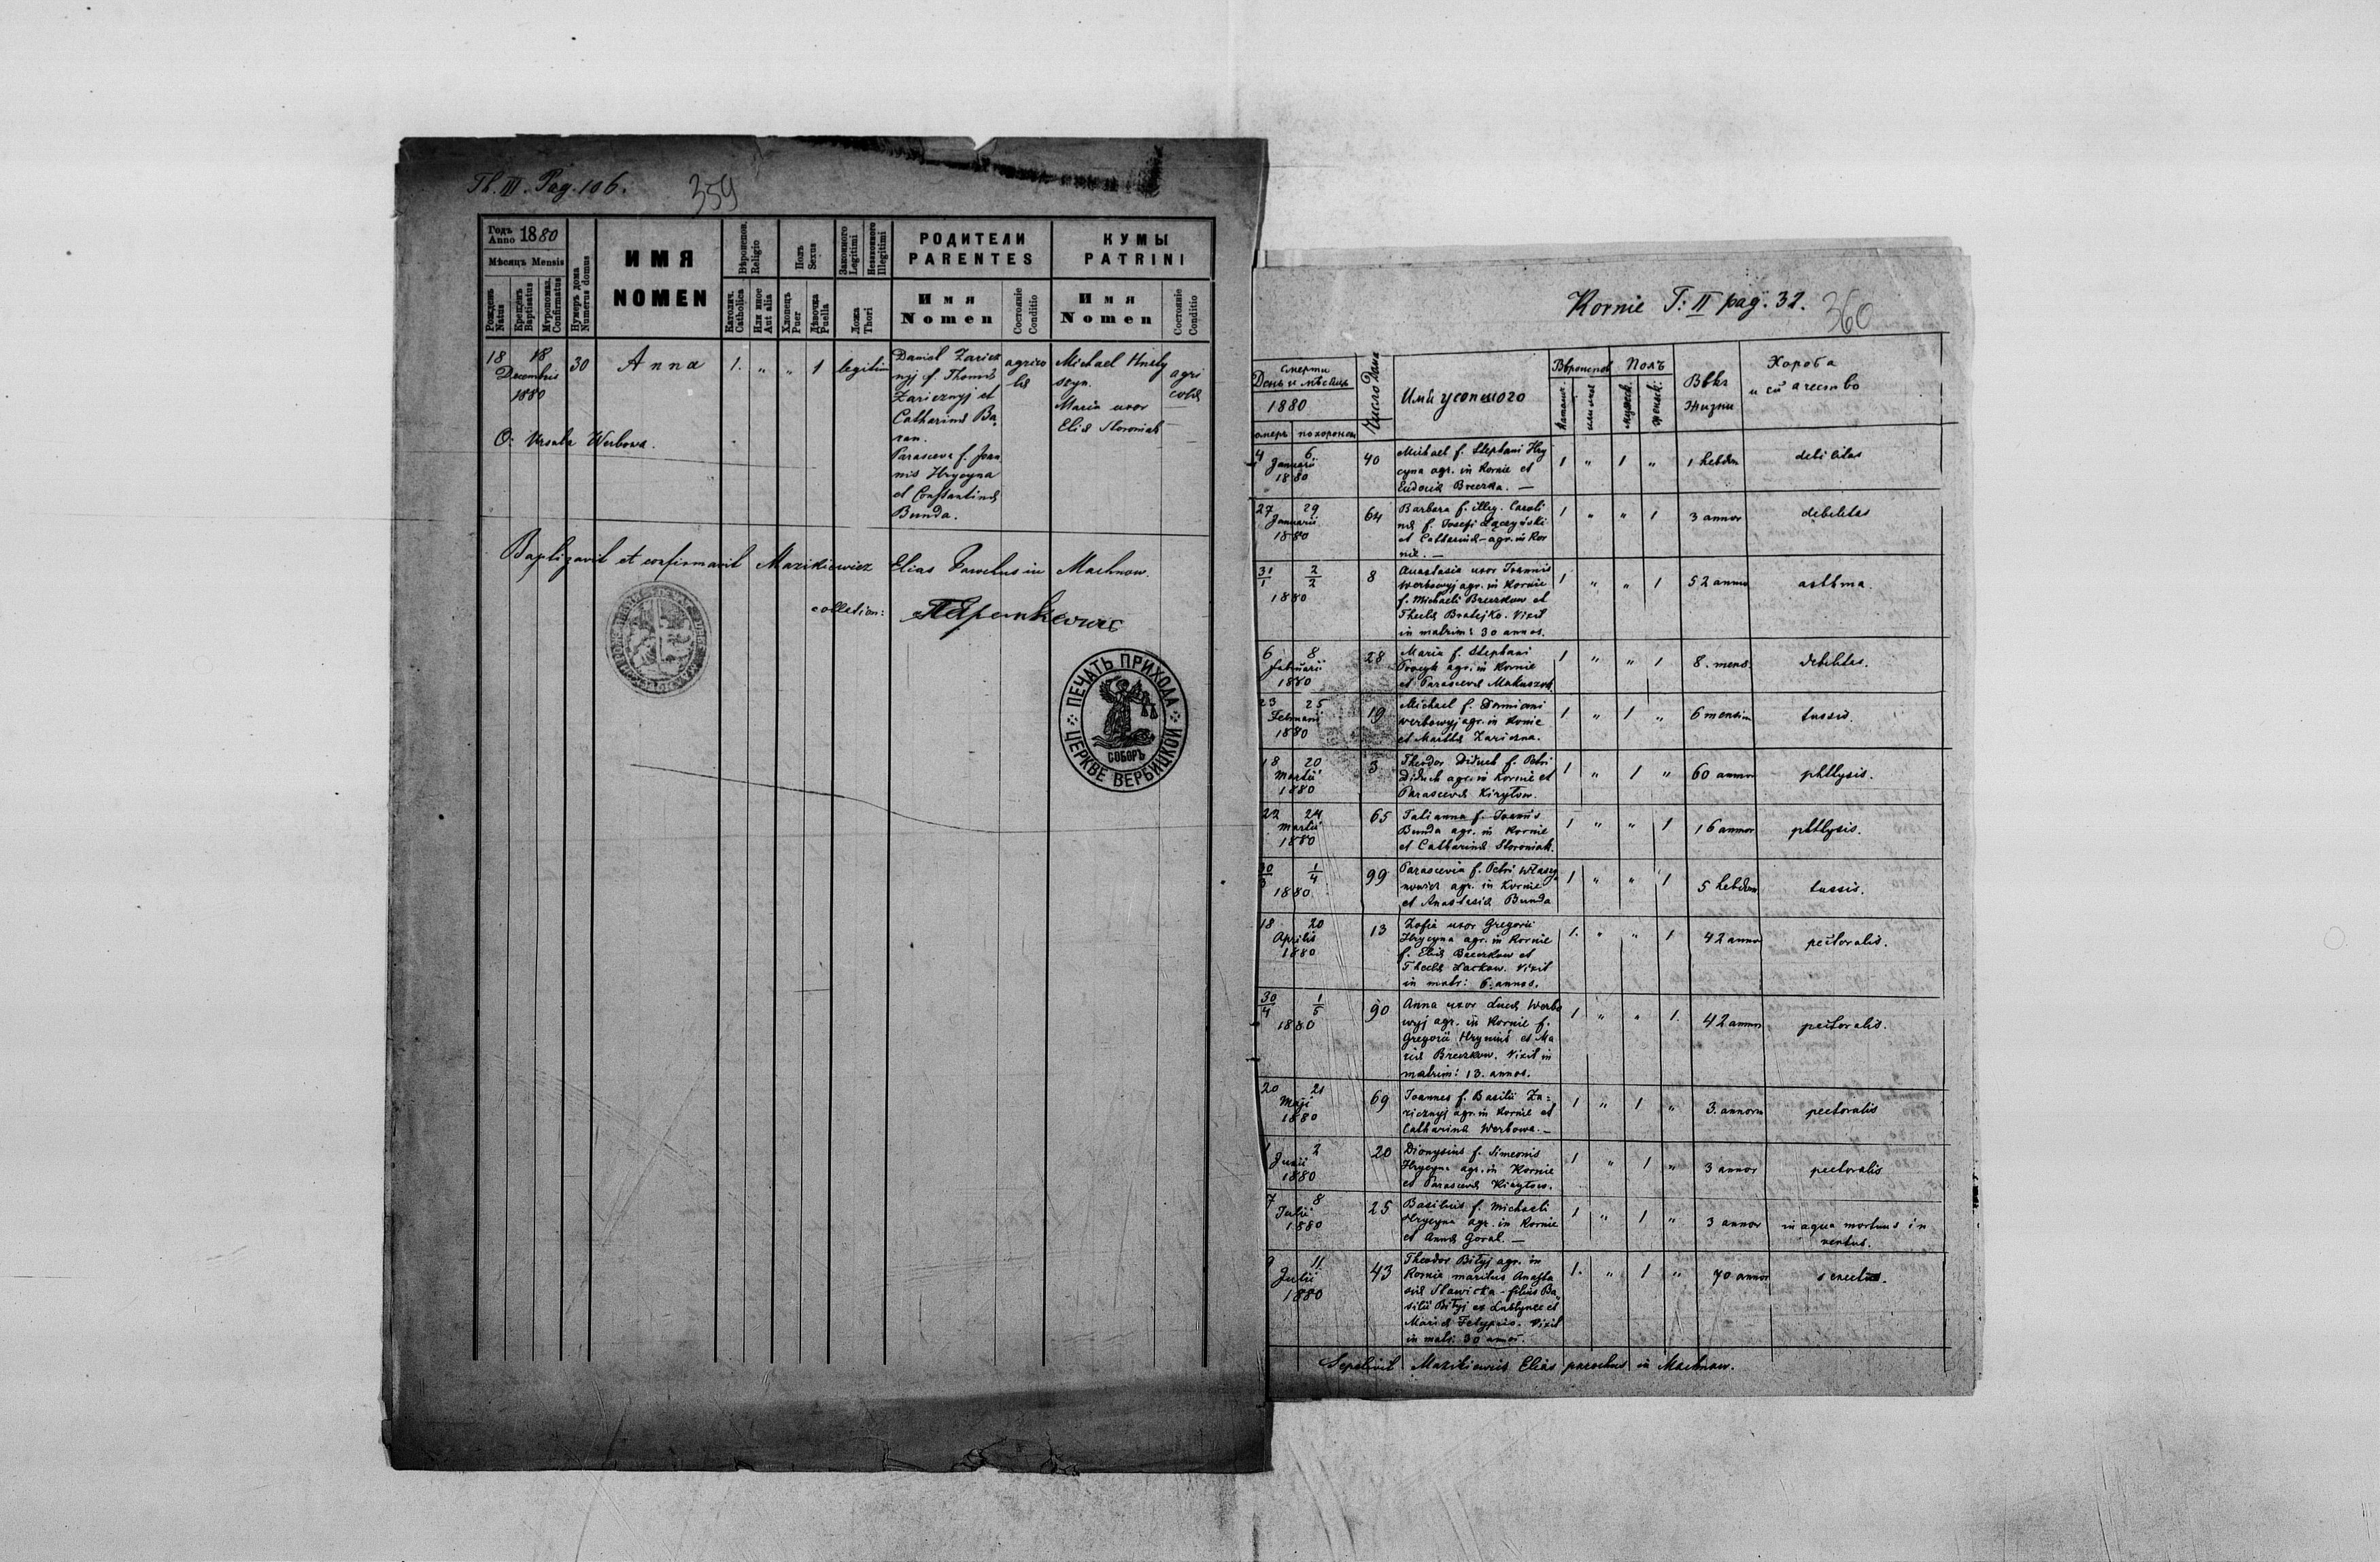 Tb. III. Pag. 106.
359
Годъ Anno 1880
Мѣсяцъ Mensis
Рожденъ Natus
Крещенъ Baptisatus
Мѵропомаз. Confirmatus
Нумеръ дома Numerus domus
ИМЯ
NOMEN
Вѣроиспов. Religio
Католич. Catholica
Или иное Aut alia
Полъ Sexus
Хлопецъ Puer
Дѣвочка Puella
Законного Legitimi
Незаконного Illegitimi
Ложа Thori
РОДИТЕЛИ
PARENTES
Имя
Nomen
Состояніе Conditio
КУМЫ
PATRINI
Имя
Nomen
Состояніе Conditio
18 18 30 Anna 1. " " 1 legitim
Decembris
1880
O: Ursula Werbowa.
Daniel Zariez
nyj f. Thomæ
Zariznyj et
Catharinæ Ba
ran.
Parasceva f. Joan
nis Hrycyna
et Constantinæ
Bunda.
agrico
læ
Michael Hnely
Maria uxor
Eliæ Storoniak
agri
colæ
Baptizavit et confirmavit Mazikiewicz Elias Parochus in Machnow.
collation:
ПЕЧАТЬ ПРИХОДА
ЦЕРКВЕ ВЕРБИЦКОЙ
СОБОРЪ
Kornie T: II pag. 32.
360
смерти
День и мѣсяць
1880
умеръ похороненъ
Число Дома
Имя усопшого
Вѣроиспов
Католич.
или иное
Полъ
мужеск.
женьск.
Вѣкъ
Жизни
Хороба
4 6 40 Michael f. Stephani Hry 1 " 1 " 1 hebdm debilitas
Januarii cyna agr. in Kornie et
1880 Eudociæ Breczka. —
27 29 64 Barbara f. illeg. Caroli 1 " " 1 3 annor debilitas
Januarii næ f. Josefi Łączyński
1880 et Catharinæ - agr. in Kor
nie. —
31/1 2/2 8 Anastasia uxor Joannis 1 " " 1 52 annor asthma
1880 Werbowyj agr. in Kornie
f. Michaeli Breczkow et
Theclæ Bratejko. Vixit
in matrim: 30 annos.
6 8 28 Maria f. Stephani 1 " " 1 8. mens. debilitas.
Februarii agr. in Kornie
1880 et Parascevæ
23 25 19 Michael f. Damiani 1 " 1 " 6 mensium tussis.
Februarii Werbowyj agr. in Kornie
1880 et Marthæ Zariczna.
18 20 3 Theodor Diduch f. Petri 1 " 1 " 60 annor phthysis.
Martii Diduch agr. in Kornie et
1880 Parascevæ Kiryłow.
22 24 65 Tatianna f. Joannis 1 " " 1 16 annor phthysis.
Martii Bunda agr. in Kornie
1880 et Catharinæ Storoniak.
30/3 1/4 99 Parascevia f. Petri 1 " " 1 5 hebdom tussis.
1880 agr. in Kornie
et Anastasiæ Bunda
18 20 13 Zofia uxor Gregorii 1. " " 1 42 annor pectoralis.
Aprilis Hrycyna agr. in Kornie
1880 f. Eliæ Breczkow et
Theclæ Vixit
in matr: 6. annos.
30/4 1/5 90 Anna uxor Lucæ Werbo 1 " " 1. 42 annor pectoralis.
1880 wyj agr. in Kornie f.
Gregorii et Ma
riæ Breczkow. Vixit in
matrim: 13. annos.
20 21 69 Joannes f. Basilii Za: 1 " 1 " 3. annorum pectoralis
Maji riznyj agr. in Kornie et
1880 Catharinæ Werbowa. —
1 2 20 Dionysius f. Simeonis 1 " 1 " 3 annor pectoralis
Junii Hrycyna agr. in Kornie
1880 et Parascevæ Kiryłow.
7 8 25 Basilius f. Michaeli 1 " 1 " 3 annor in aqua mortuus in
Julii Hrycyna agr. in Kornie ventus.
1880 et Annæ Goral. —
9 11 43 Theodor Biłyj agr. in 1. " 1 " 70 annor senectus.
Julii Kornie maritus Anasta
1880 siæ Sławicka - filius Ba
silii Biłyj ex et
Mariæ Vixit
in matr: 30 annos.
Sepelivit Mazikiewicz Elias parochus in Machnow.